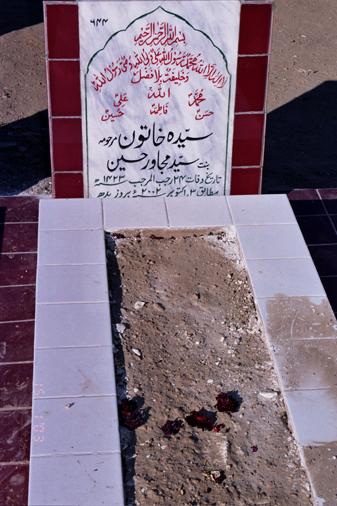 ۶۴۴
بسم اللہ الرحمن الرحیم
لا الہ الا اللہ محمد رسول اللہ علی ولی اللہ وصی رسول اللہ
وخلیفتہ بلا فصل
محمد اللہ علی
حسن فاطمہ حسین
سیدہ خاتون مرحومہ
بنت سید مجاور حسین
تاریخ وفات ۲۴ رجب المرجب ۱۴۲۳ھ
مطابق ۲ اکتوبر ۲۰۰۲ء بروز بدھ